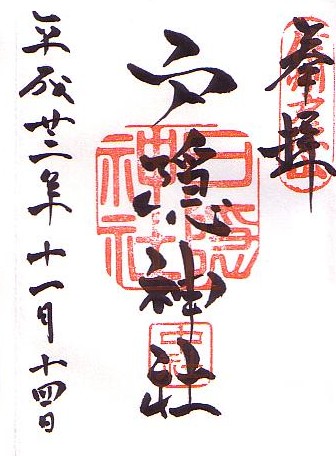 奉拝
戸隠神社
平成廿二年十一月十四日
戸隠神社
中社